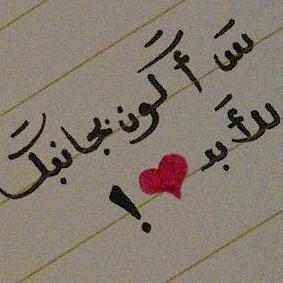 سَ أكون بجانبكَ
للأَبد !